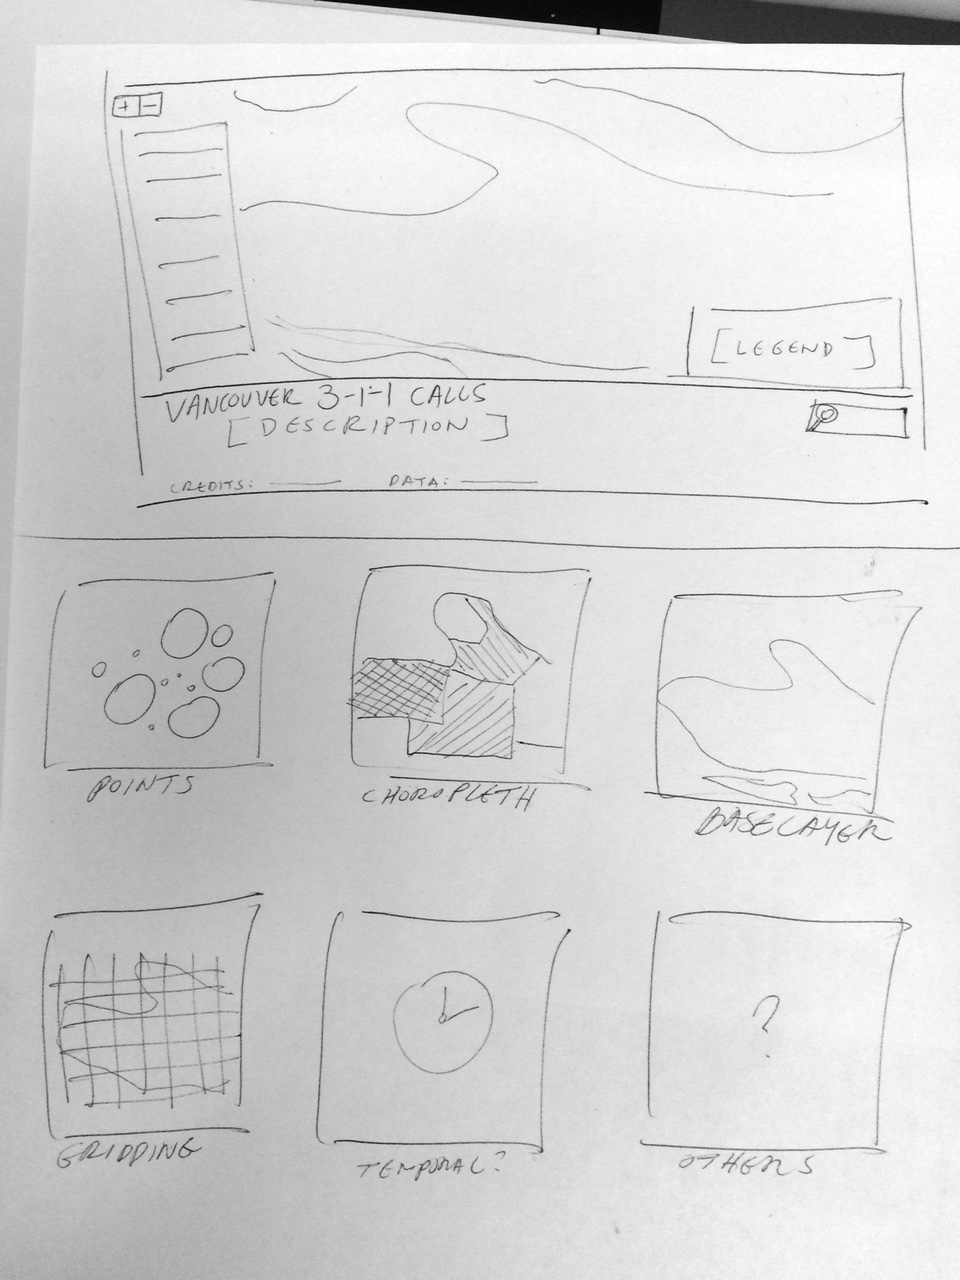 + -
[LEGEND]
VANCOUVER 3-1-1 CALLS
[DESCRIPTION]
CREDITS: DATA:
POINTS
CHOROPLETH
BASELAYER
GRIDDING
?
TEMPORAL?
OTHERS